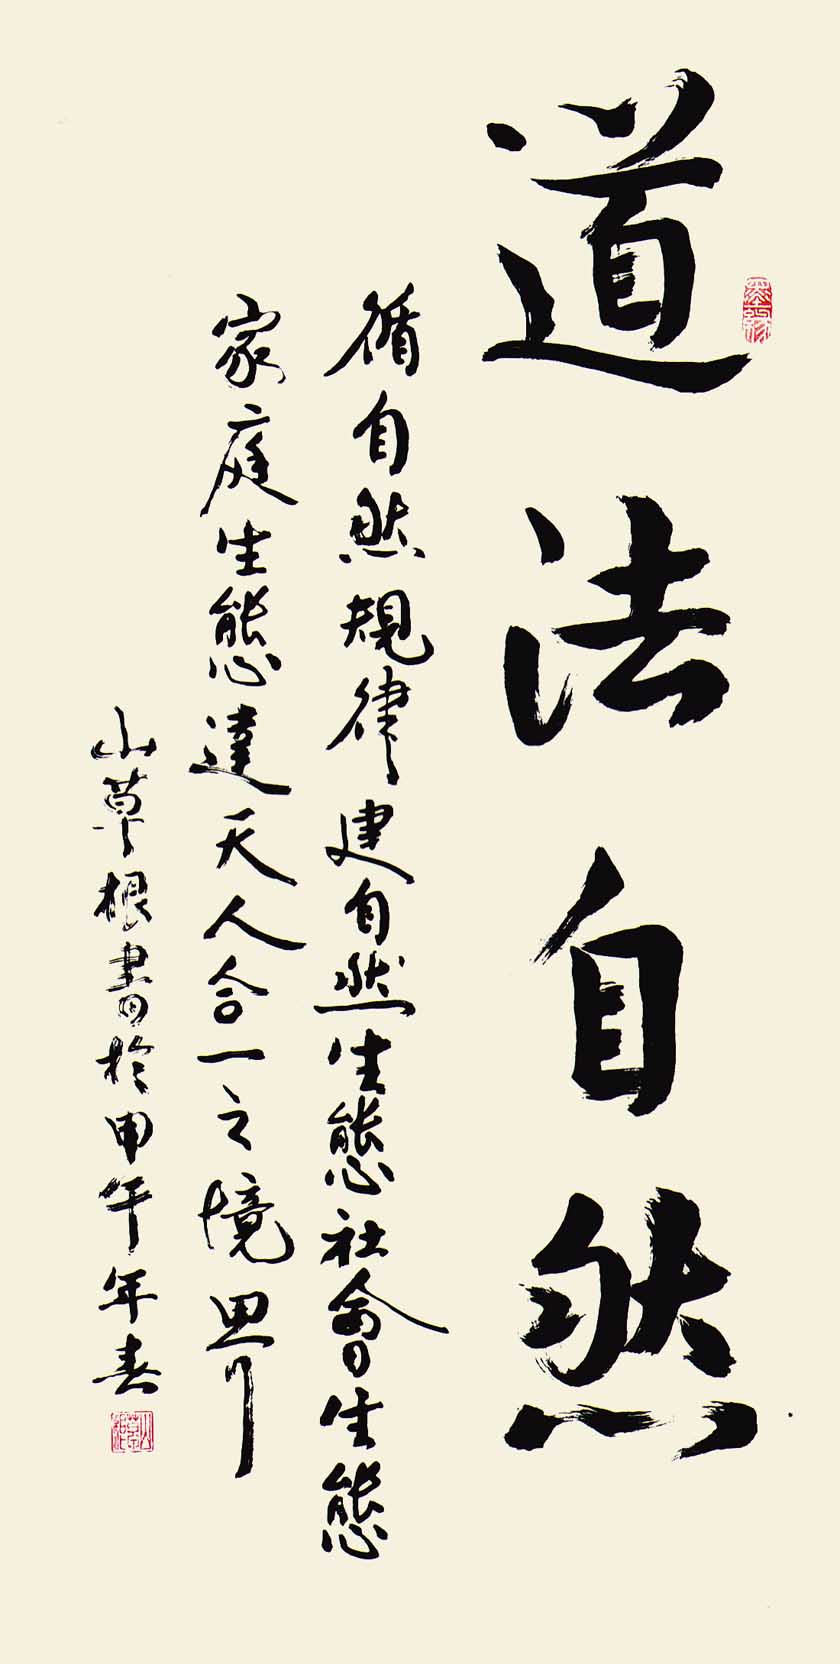 道法自然
墨缘
循自然規律建自然生態社會生態
家庭生態達天人合一之境界
山草根書於甲午年春